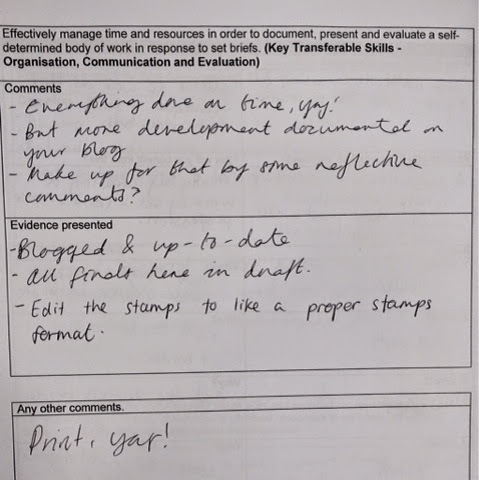 Effectively manage time and resources in order to document, present and evaluate a self-
determined body of work in response to set briefs. (Key Transferable Skills -
Organisation, Communication and Evaluation)
Comments
- Everything done on time, yay!
- But more development documented on
your blog
- Make up for that by some reflective
comments?
Evidence presented
-Blogged & up-to-date
- All finals here in draft.
- Edit the stamps to like a proper stamps
format.
Any other comments.
Print, yay!